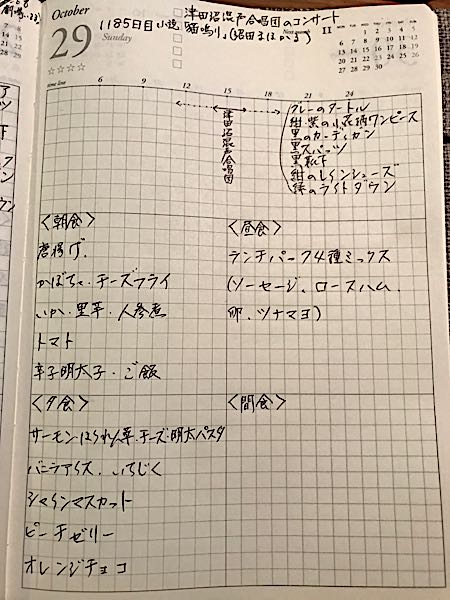 October
29
Sunday
☆☆☆☆
1185日目 小説
津田沼混声合唱団のコンサート
「猫鳴り」(沼田まほかる)
11
time line
6 9 12 15 18 21 24
津田沼混声合唱団
グレーのタートル
紺・紫の小花柄ワンピース
黒のカーディガン
黒スパッツ
黒靴下
紺のレインシューズ
緑のライトダウン
<朝食>
唐揚げ、
かぼちゃ・チーズフライ
いか・里芋・人参煮
トマト
辛子明太子・ご飯
<昼食>
ランチパック4種ミックス
(ソーセージ、ロースハム、
卵、ツナマヨ)
<夕食>
サーモン・ほうれん草・チーズ・明太パスタ
バニラアイス、いちじく
シャインマスカット
ピーチゼリー
オレンジチョコ
<間食>